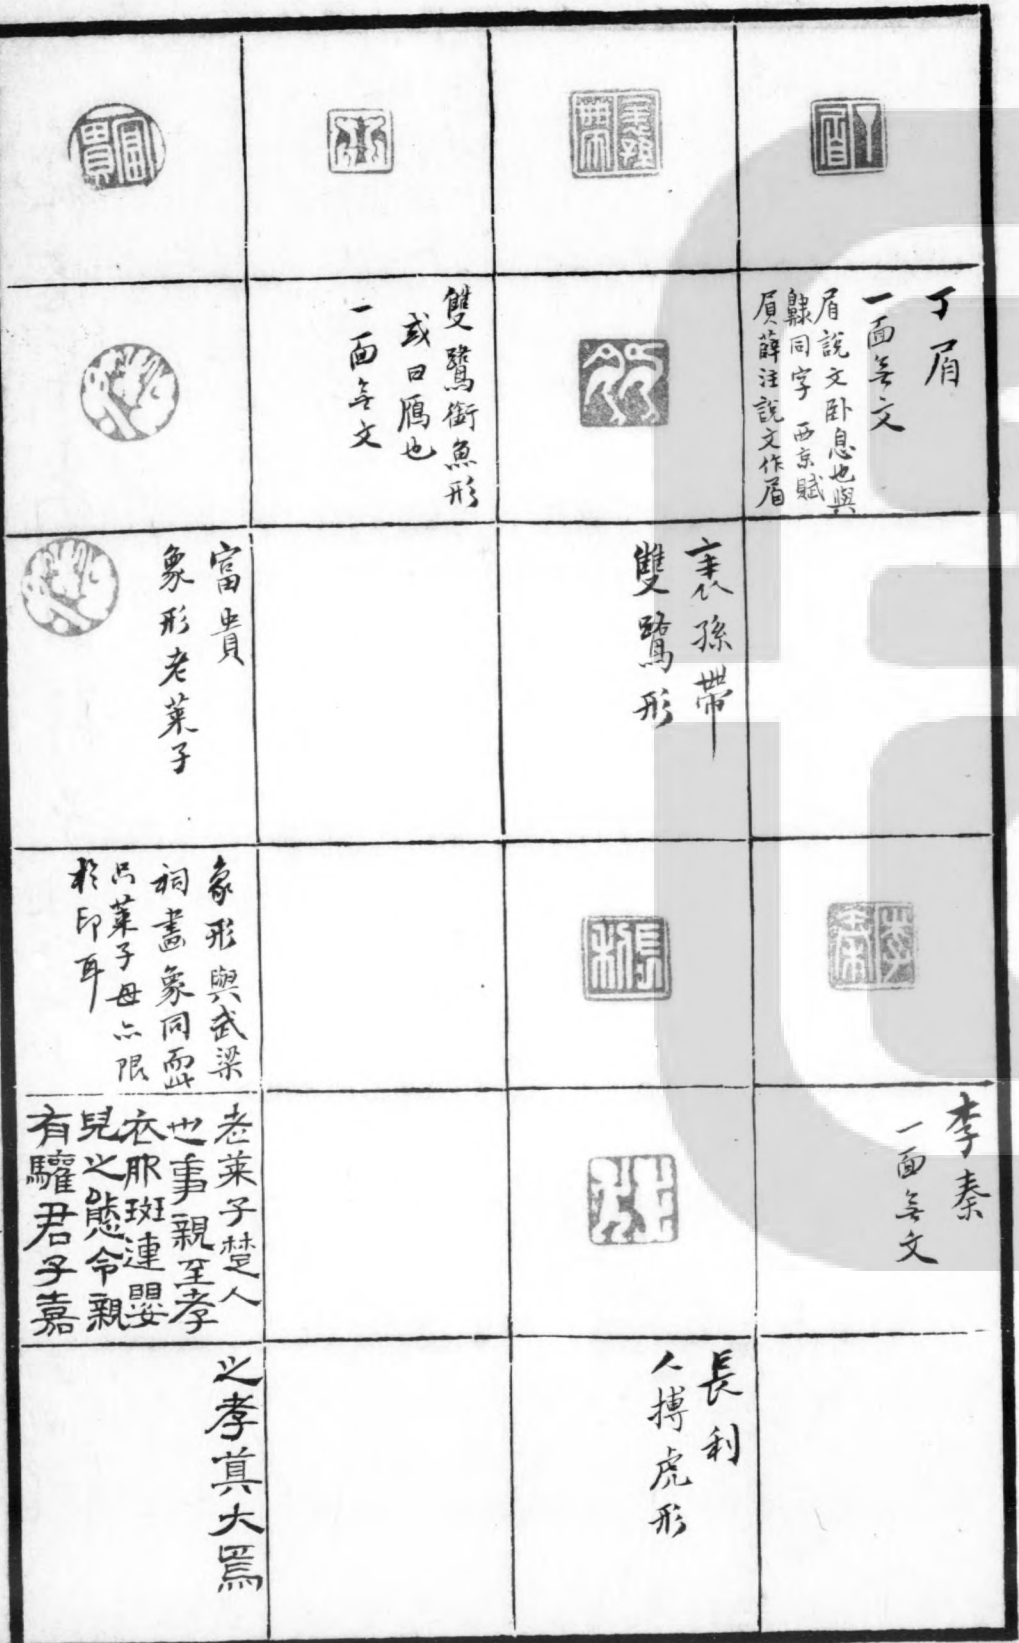 丁眉
一面無文
眉說文卧息也與
齂同字 西京賦
屓薛注說文作眉
李秦
一面無文
袁孫帶
雙鷺形
長利
人搏虎形
雙鷺銜魚形
或曰鴈也
一面無文
富貴
象形老萊子
象形與武梁
祠畫象同而此
只萊子母亦限
於印耳
老萊子楚人
也事親至孝
衣服斑連嬰
兒之態令親
有驩君子嘉
之孝莫大焉